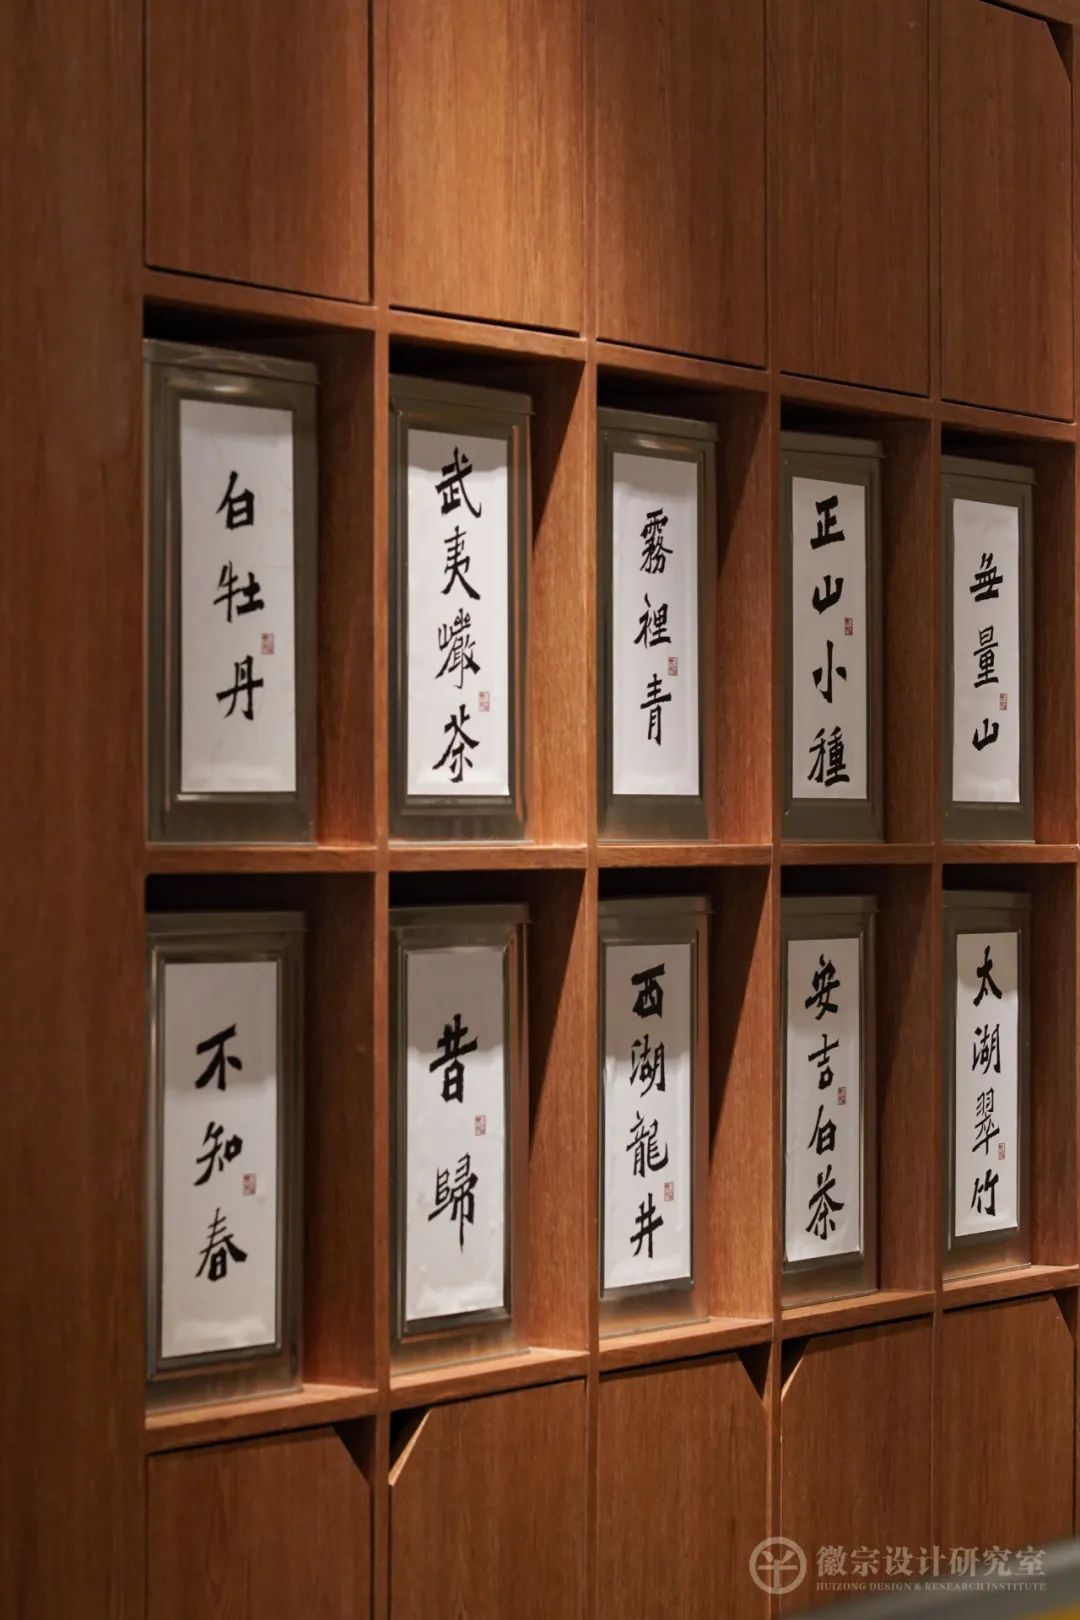 白牡丹
武夷巖茶
霧裡青
正山小種
無量山
不知春
昔歸
西湖龍井
安吉白茶
太湖翠竹
徽宗设计研究室
HUIZONG DESIGN & RESEARCH INSTITUTE